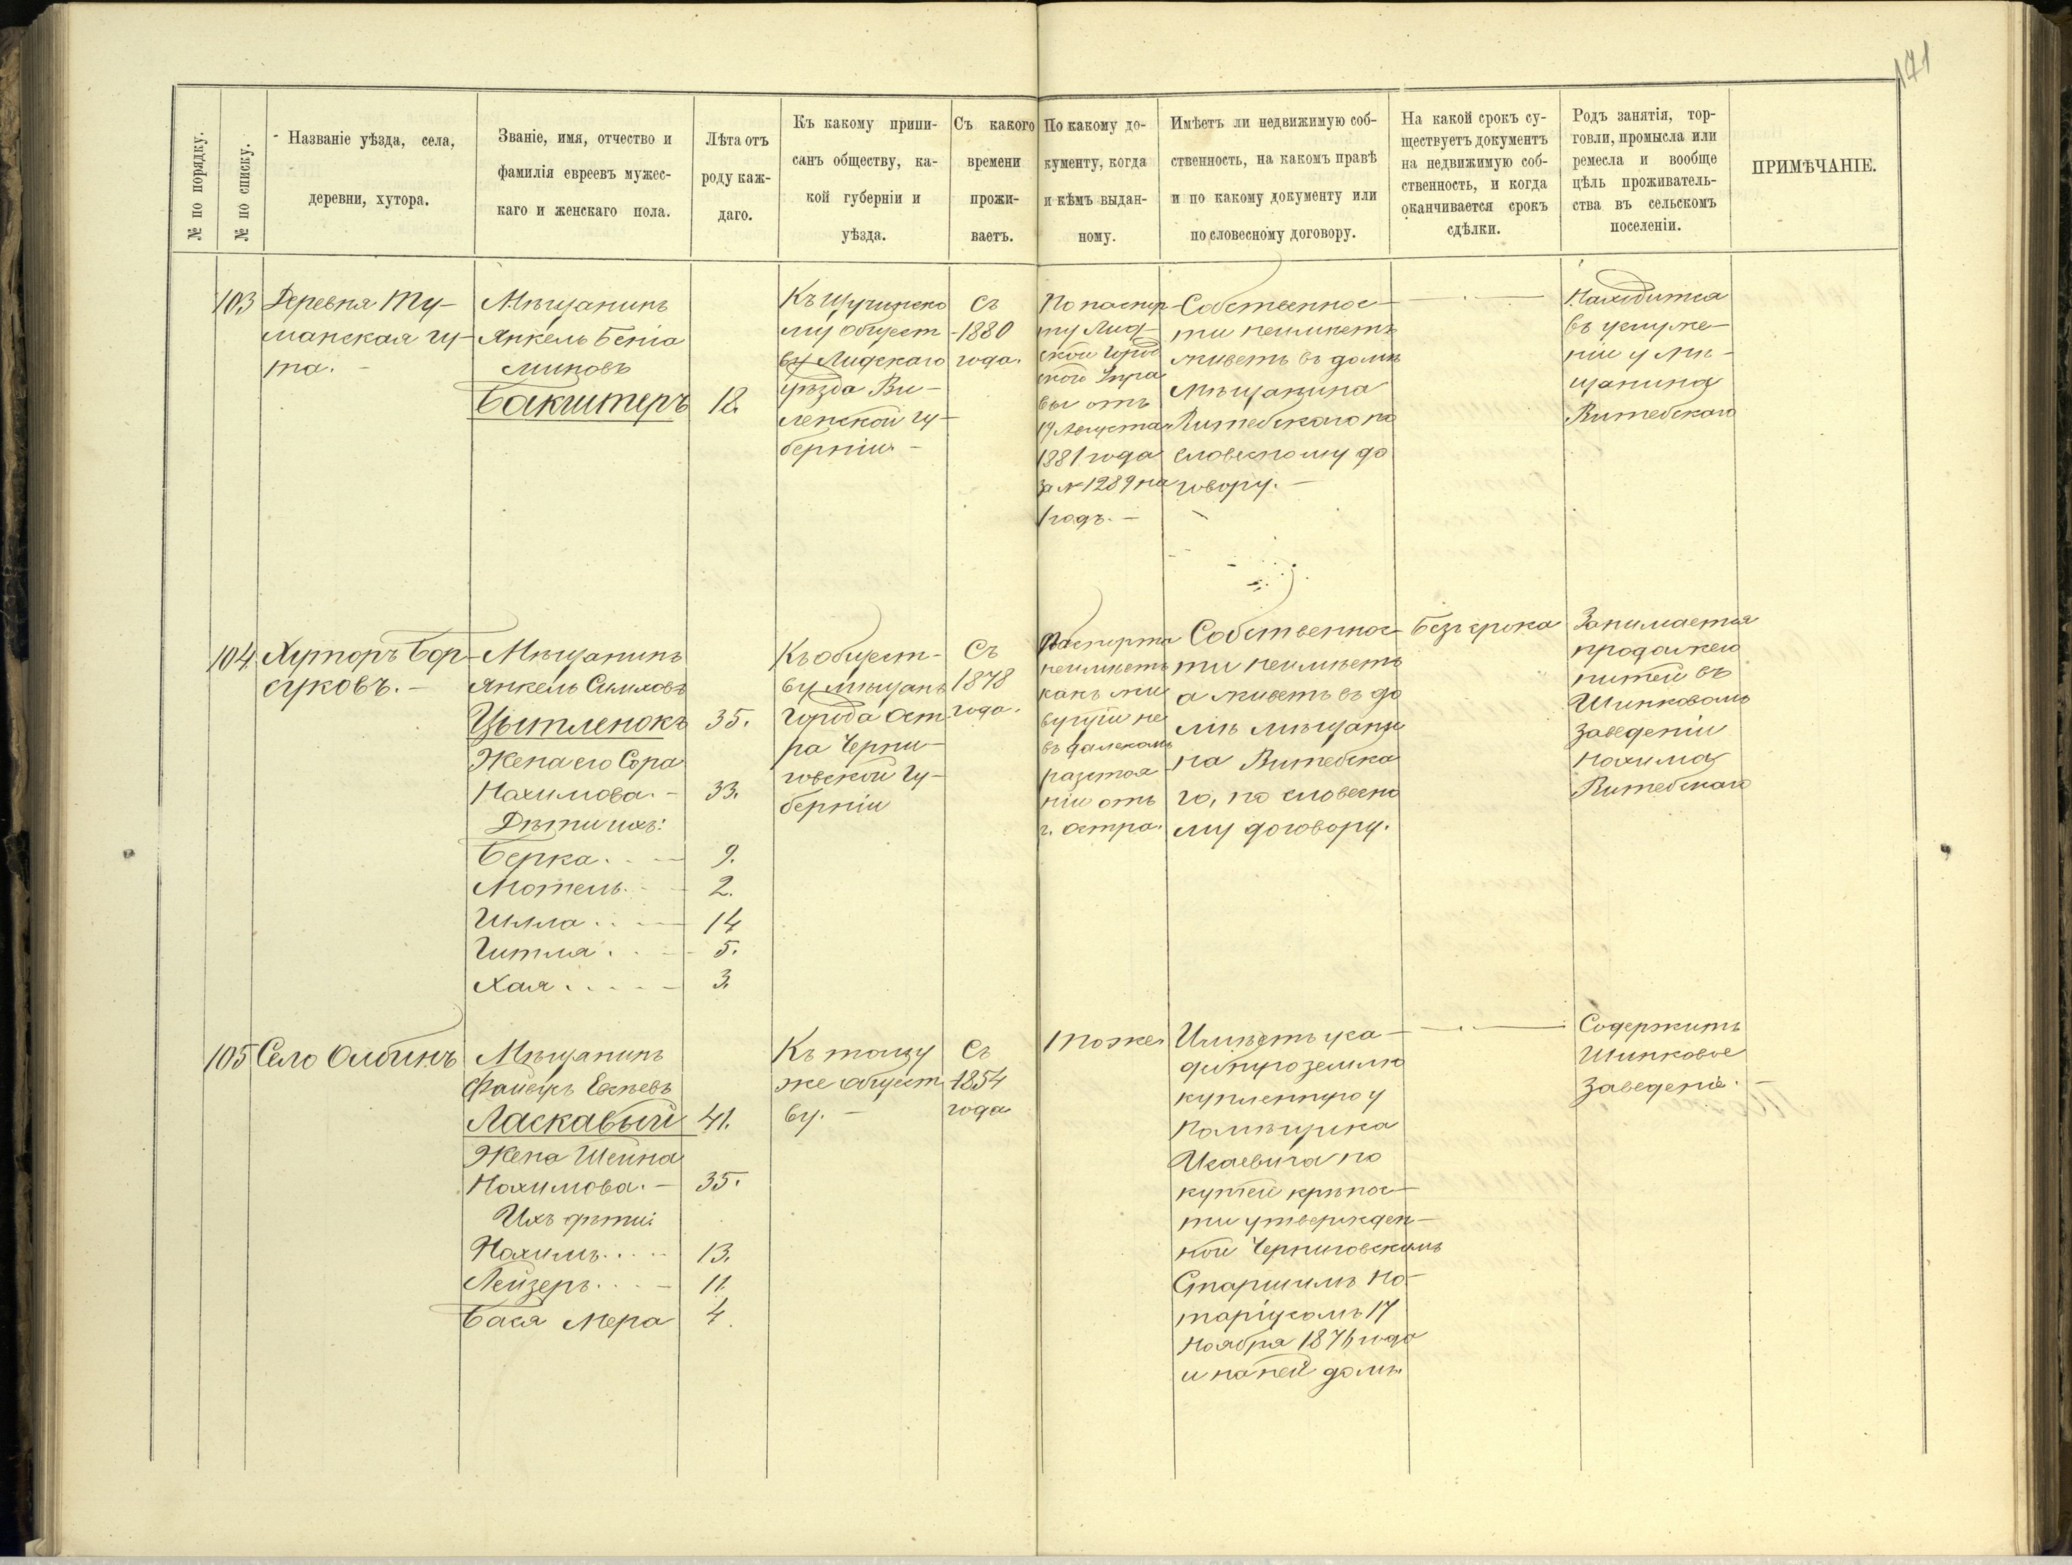 171
№ по порядку.
№ по списку.
Названіе уѣзда, села,
деревни, хутора.
Званіе, имя, отчество и
фамилія евреевъ мужес-
каго и женскаго пола.
Лѣта отъ
роду каж-
даго.
Къ какому припи-
санъ обществу, ка-
кой губерніи и
уѣзда.
Съ какого
времени
прожи-
ваетъ.
По какому до-
кументу, когда
и кѣмъ выдан-
ному.
Имѣетъ ли недвижимую соб-
ственность, на какомъ правѣ
и по какому документу или
по словесному договору.
На какой срокъ су-
ществуетъ документъ
на недвижимую соб-
ственность, и когда
оканчивается срокъ
сдѣлки.
Родъ занятія, тор-
говли, промысла или
ремесла и вообще
цѣль проживатель-
ства въ сельскомъ
поселеніи.
ПРИМѢЧАНІЕ.
103
Деревня Ту-
манская гу-
та. -
Мѣщанинъ
Янкель Беніа
миновъ
Бакштеръ
12.
Къ Щучинско
му общест
ву Лидскаго
уѣзда Ви-
ленской гу-
берніи -
Съ
1880
года.
По паспор
ту Лид-
ской Город
ской Упра
вы отъ
17 Августа
1881 года
за № 1289 на
1 годъ. -
Собственнос-
ти неимѣетъ
живетъ въ домѣ
Мѣщанина
Витебскаго по
словесному до
говору. -
Находится
въ услуже-
ніи у мѣ-
щанина
Витебскаго
104
Хуторъ Бор-
суковъ. -
Мѣщанинъ
Янкель Симховъ
Цытленокъ
35.
Жена его Сора
Нахимова. -
33.
Дѣти ихъ:
Берка
9.
Мотель
2.
14
Гитля
5.
Хая
3.
Къ общест-
ву мѣщанъ
города Ост
ра Черни-
говской Гу-
берніи
Съ
1878
года.
Паспорта
неимѣетъ
какъ жи
вущій не
въ далекомъ
разстоя
ніи отъ
г. Остра.
Собственнос-
ти неимѣетъ
а живетъ въ до
мѣ мѣщани
на Витебска
го, по словесно
му договору.
Безъ срока
Занимается
продажею
питей въ
Шинковомъ
заведеніи
Нахима
Витебскаго
105
Село Олбинъ
Мѣщанинъ
Ласкавый
41.
Жена Шейна
Нахимова. -
35.
Ихъ дѣти:
Нахимъ
13.
Лейзеръ
11.
Бася Мера
4.
Къ тому
же общест
ву. -
Съ
1854
года
Тоже
Имѣетъ уса-
дебную землю
купленную у
Помѣщика
по
купчей крѣпос-
ти утвержден-
ной Черниговскимъ
Старшимъ Но-
таріусомъ 17
Ноября 1876 года
и на ней домъ.
Содержитъ
Шинковое
заведеніе. -